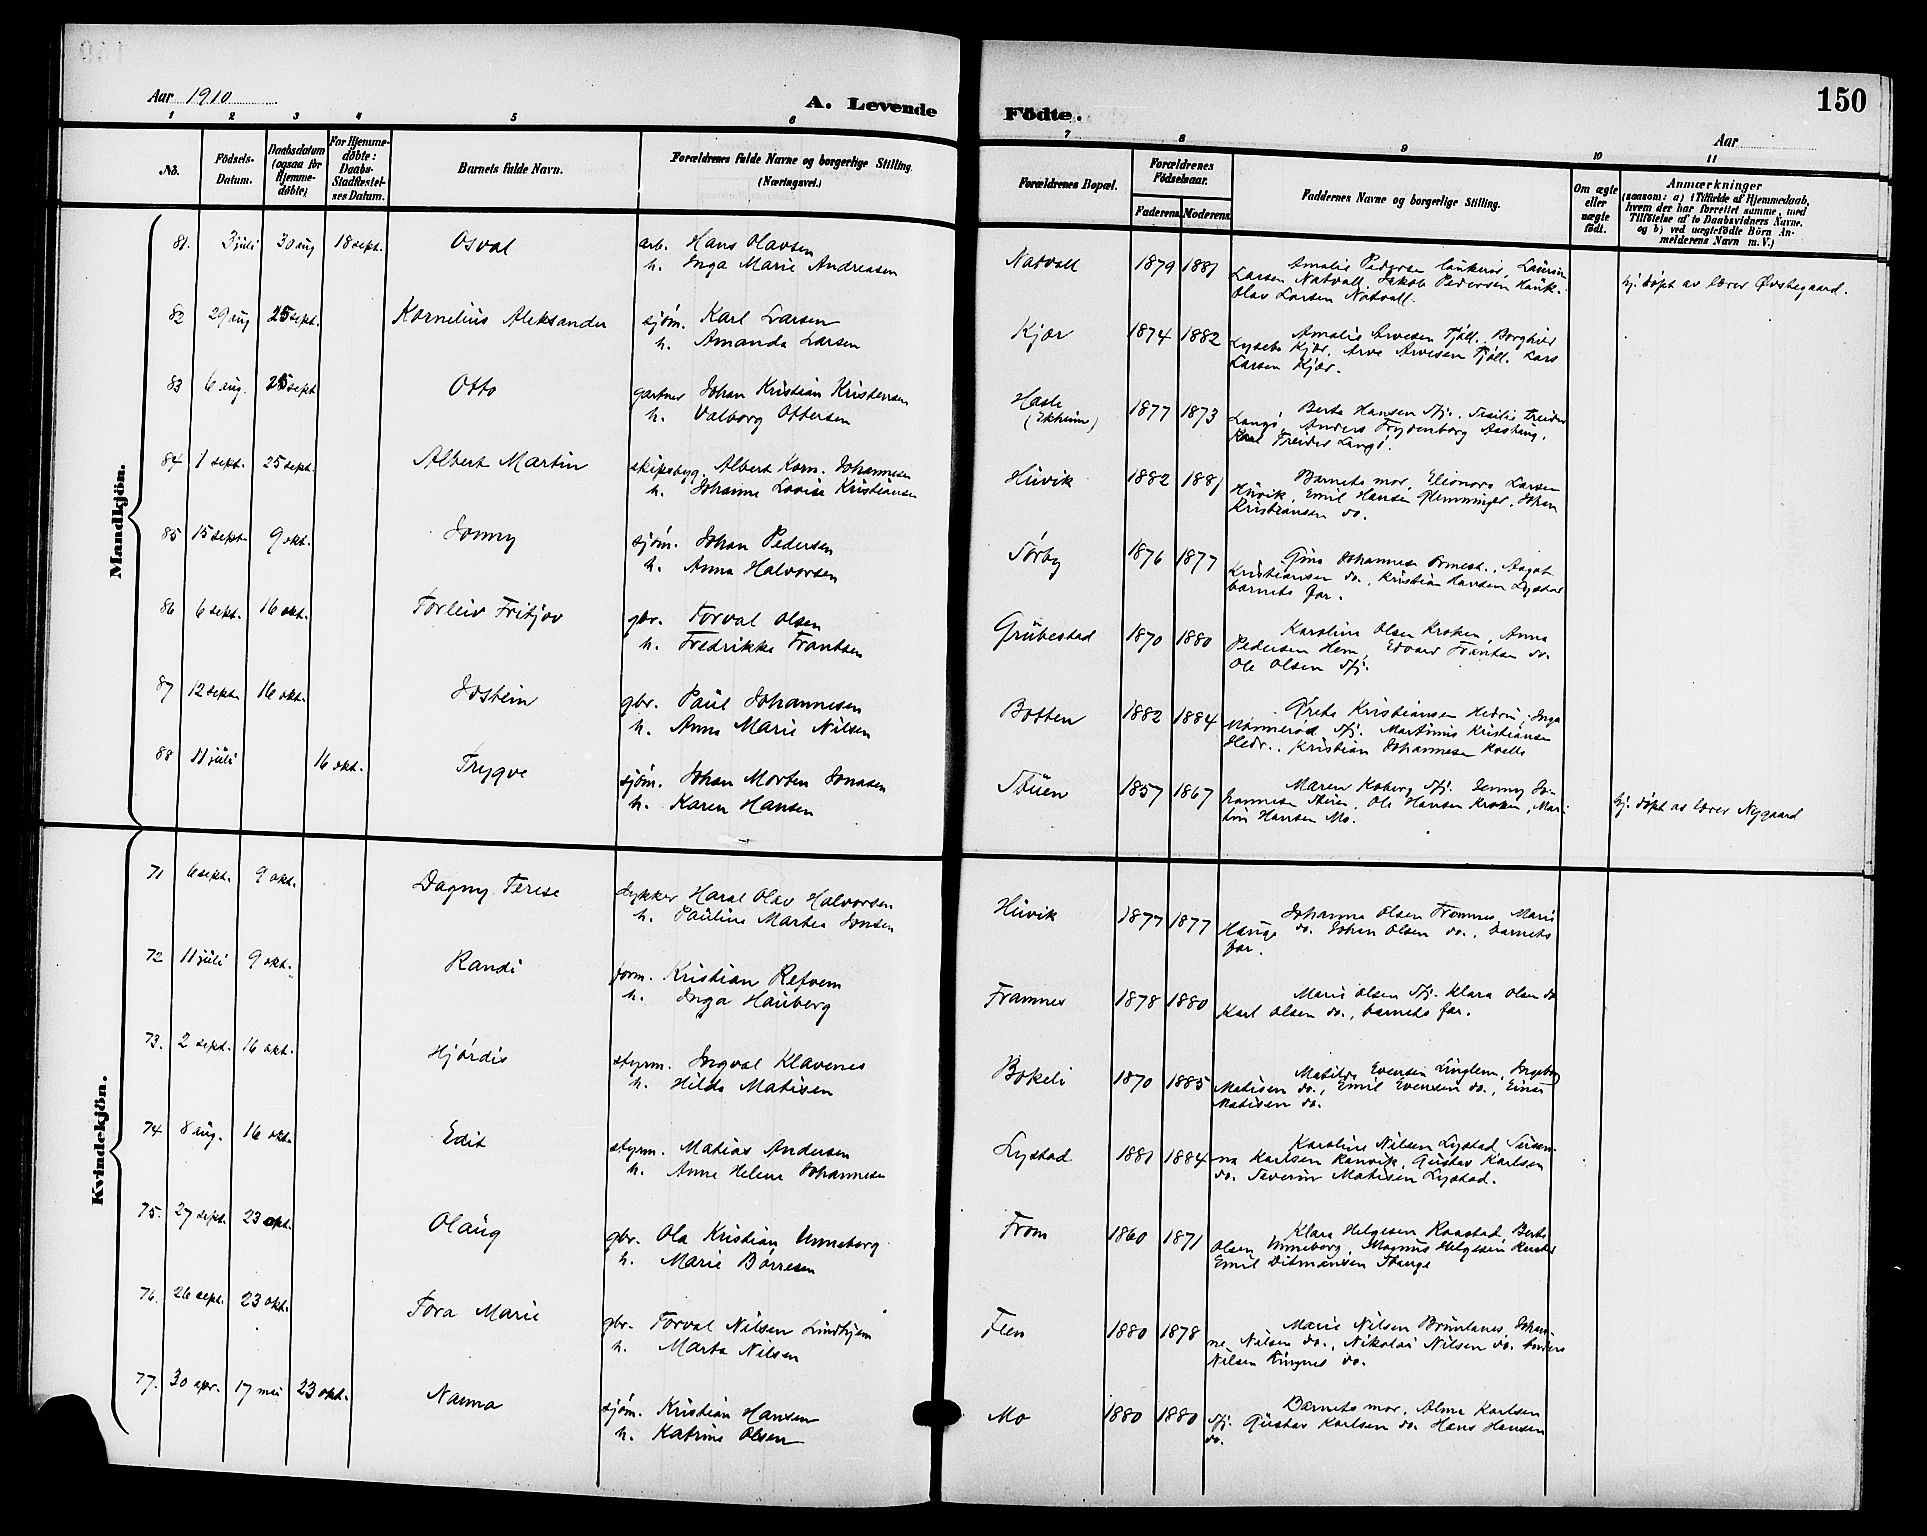 Aar 1910
A. Levende
Födte.
150
Aar
1 2 3 4 5 6 7 8 9 10 11
No.
Födsels-Datum.
Daabsdatum (ogsaa for Hjemme-döbte)
For Hjemme-döbte: Daabs-Stadfæstel-ses Datum.
Barnets fulde Navn.
Forældrenes fulde Navne og borgerlige Stilling.
(Næringsvei.)
Forældrenes Bopæl.
Forældrenes Födselsaar.
Faderens. Moderens.
Faddernes Navne og borgerlige Stilling.
Om ægte eller uægte födt.
Anmærkninger
(saasom: a) i Tilfælde af Hjemmedaab,
hvem der har forrettet samme, med
Tilföielse af to Daabsvidners Navne,
og b) ved uægtefödte Börn An-
melderens Navn m. V.)
Mandkjön.
81. 3 juli 30 aug 18 sept. Osval arb. Hans Olavsen
h. Inga Marie Andreasen
Natvall 1879 1881 Amalie Pedersen Laukerø, Laurin
Larsen Natvall. Jakob Pedersen Hauk-
Olav Larsen Natvall.
hj. døpt av lærer Øvstegaard.
82 29 aug 25 sept. Kornelius Aleksander sjøm. Karl Larsen
h. Amanda Larsen
Kjær 1874 1882 Amalie Arvesen Fjøll. Borghild
Lysebo Kjær, Arve Arvesen Fjøll. Lars
Larsen Kjær.
83 6 aug. 25 sept Otto gartner Johan Kristian Kristensen
h. Valborg Ottersen
Hasle 1877 1873 Berta Hansen Sfj.
Langø, Anders Frydenborg
Karl Treider Langø.
84 1 sept. 25 sept. Albert Martin skipsbyg. Albert Korn. Johannesen
h. Johanne Lovise Kristiansen
Huvik 1882 1881 Barnets mor, Elionora Larsen
Huvik, Emil Hansen Flemminger, Johan
Kristiansen do.
85 15 sept. 9 okt. Jonny sjøm. Johan Pedersen
h. Anna Halvorsen
Tørby 1876 1877 Gina Johannesen
Kristiansen do, Kristian Hansen Lystad
barnets far.
86 6 sept. 16 okt. Torleiv Fritjov gbr. Torval Olsen
h. Fredrikke Frantsen
Grubestad 1870 1880 Karoline Olsen Kroken, Anna
Pedersen Hem, Edvard Frantsen do.
Ole Olsen Sfj.
87 12 sept. 16 okt. Jostein gbr. Paul Johannesen
h. Anna Marie Nilsen
Botten 1882 1884 Grete Kristiansen Hedru, Inga
Sfj. Martinius Kristiansen
Hedr., Kristian Johannesen
88 11 juli 16 okt. Trygve sjøm. Johan Morten Jonasen
h. Karen Hansen
Stuen 1857 1867 Maren Koberg Sfj. Jenny Jo-
hannesen Stuen, Ole Hansen Kroken, Mar-
tin Hansen Mo.
hj. døpt av lærer Nygaard
Kvindekjön.
71 6 sept. 9 okt. Dagny Terese dykker Haral Olav Halvorsen
h. Pauline Martea Jonsen
Huvik 1877 1877 Johanna Olsen Framnes, Marie
Hauge do. Johan Olsen do., barnets
far.
72 11 juli 9 okt. Randi form. Kristian Refvem
h. Inga Hauberg
Framnes 1878 1880 Marie Olsen Sfj. Klara Olsen do
Karl Olsen do., barnets far.
73. 2 sept. 16 okt. Hjørdis styrm. Ingval Klavenes
h. Hilda Matisen
Bokeli 1870 1885 Matilde Evensen Linglem, Ingeborg
Matisen do., Emil Evensen do., Einar
Matisen do.
74 8 aug. 16 okt. Edit styrm. Matias Andersen
h. Anne Helene Johannesen
Lystad 1881 1884 Karoline Nilsen Lystad, Susan-
na Karlsen Ranvik, Gustav Karlsen
do. Severin Matisen Lystad.
75. 27 sept. 23 okt. Olaug gbr. Ola Kristian Unneberg
h. Marie Børresen
From 1860 1871 Klara Helgesen Raastad, Berta
Olsen Unneberg, Magnus Helgesen
Emil Ditmansen Stange
76. 26 sept. 23 okt. Tora Marie gbr. Torval Nilsen Lindhjem
h. Marta Nilsen
Flen 1880 1878 Marie Nilsen Brunlanes, Johan-
ne Nilsen do., Nikolai Nilsen do. Anders
Nilsen Ringnes do.
77. 30 apr. 17 mai 23 okt. Nanna sjøm. Kristian Hansen
h. Katrine Olsen
Mo 1880 1880 Barnets mor, Alma Karlsen
Sfj. Gustav Karlsen do. Hans Hansen
do.